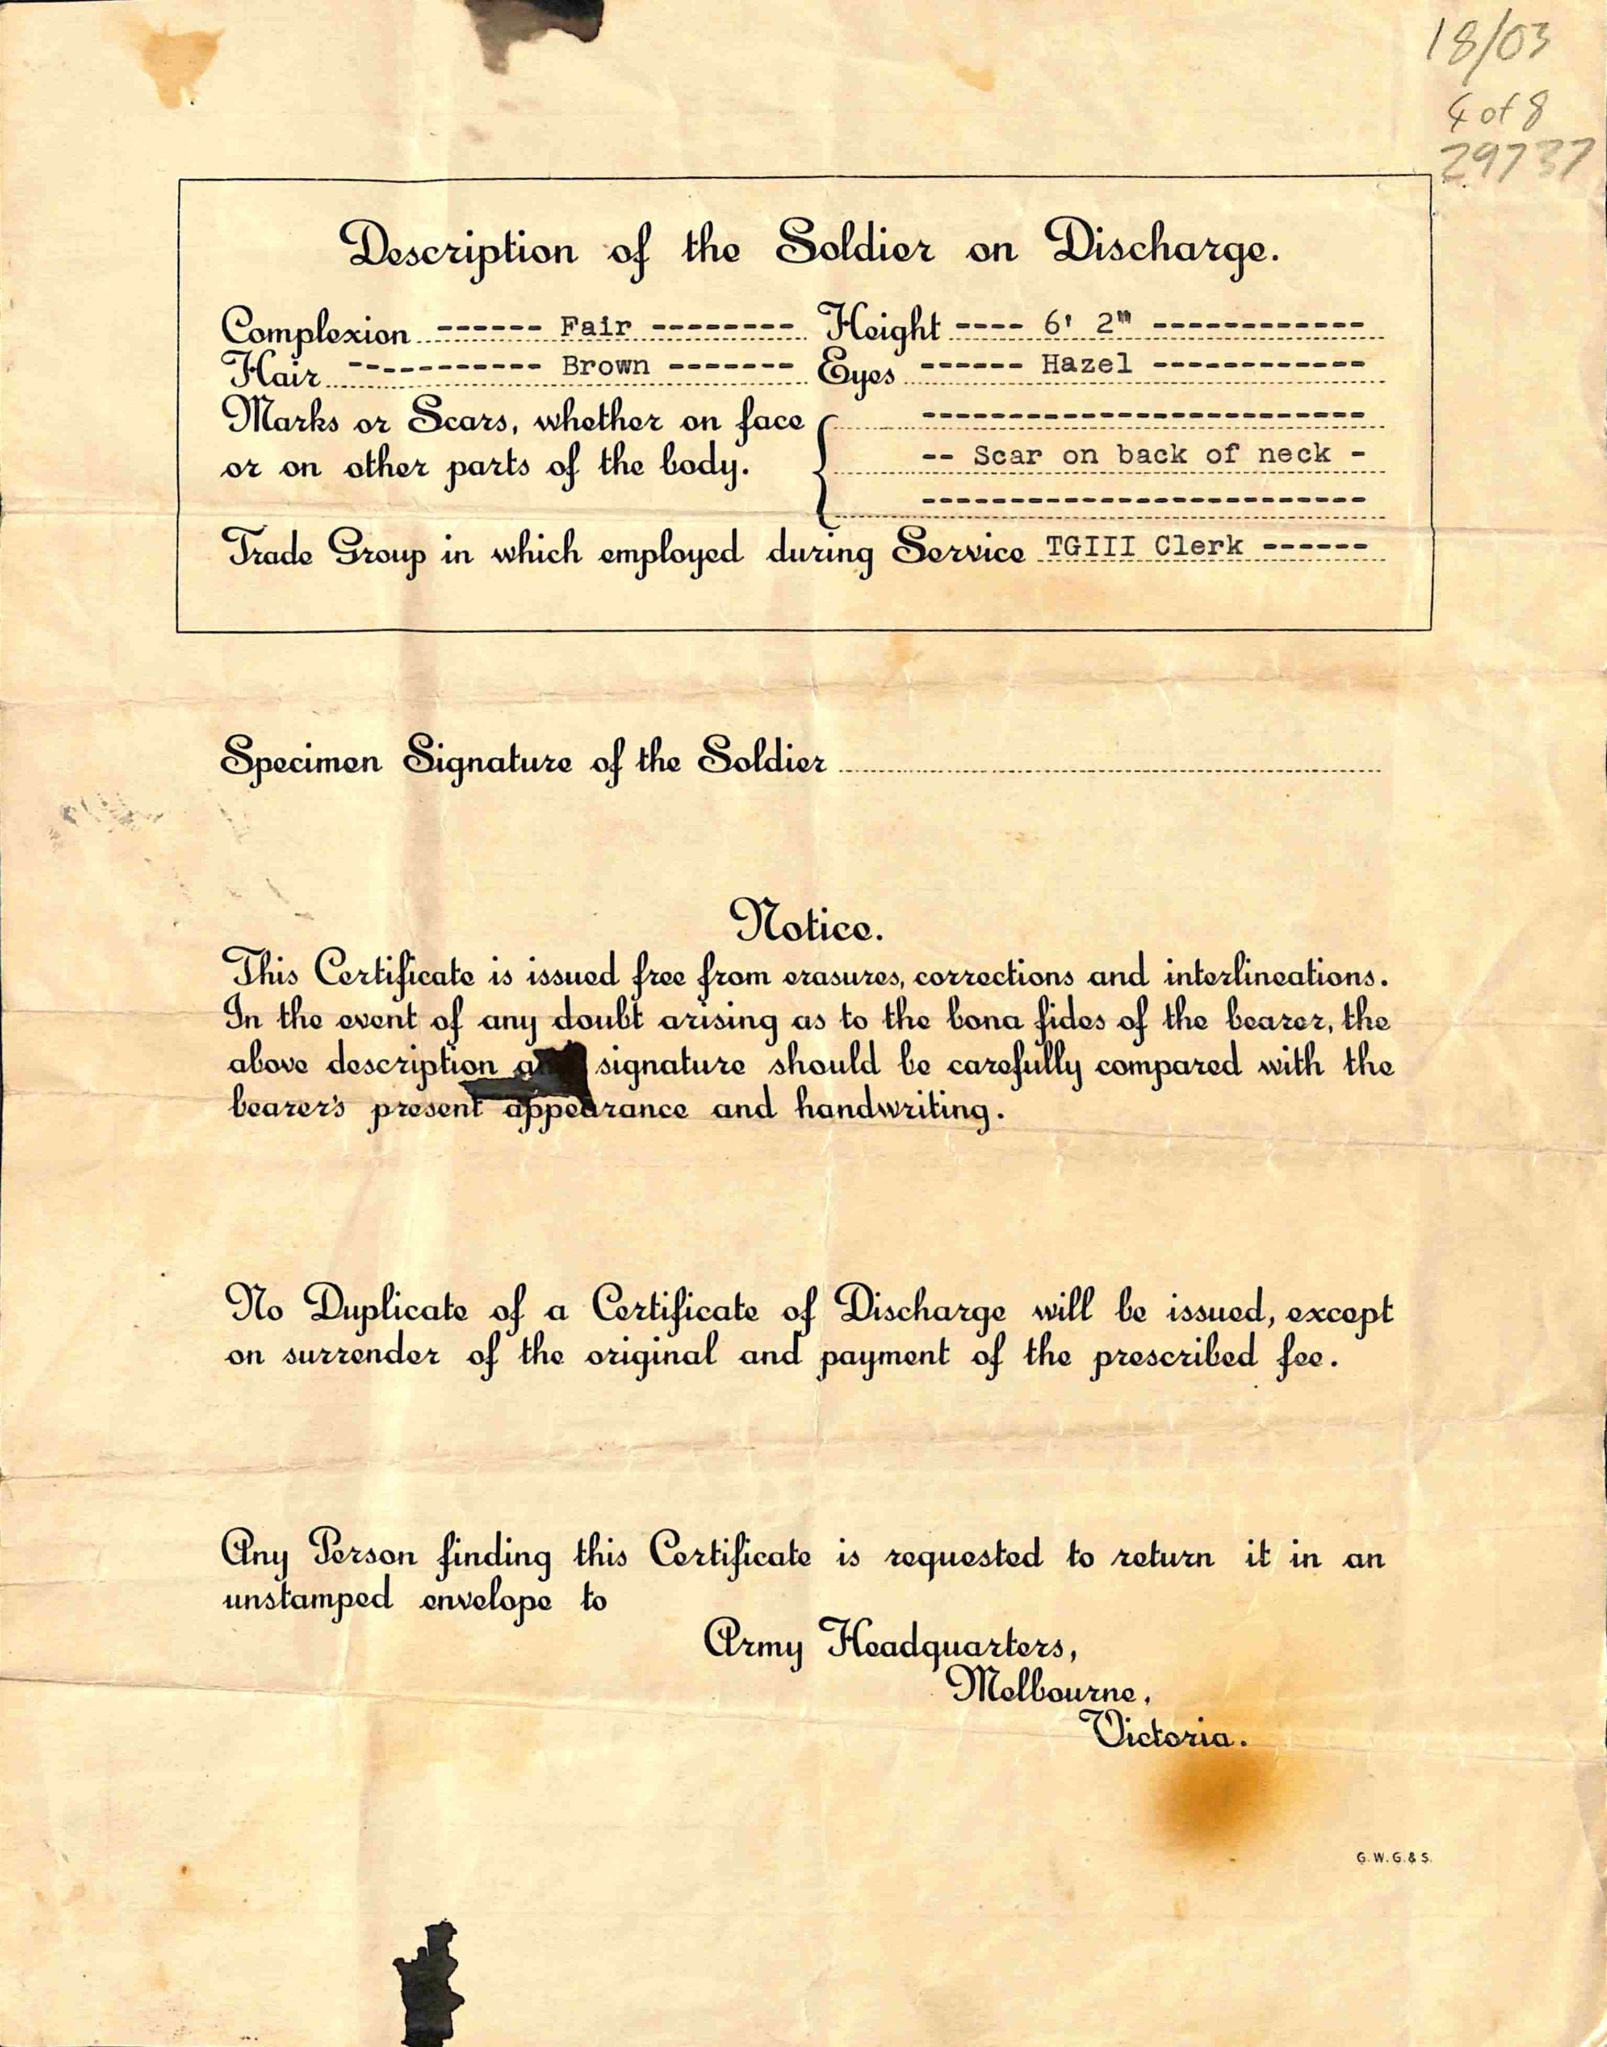 18/03
4 of 8
29737
Description of the Soldier on Discharge.
Complexion ------ Fair -------- Height ---- 6' 2" ------------
Hair ----------- Brown ------- Eyes ------ Hazel ------------
Marks or Scars, whether on face
or on other parts of the body. -- Scar on back of neck -
Trade Group in which employed during Service TGIII Clerk ------
Specimen Signature of the Soldier
Notice.
This Certificate is issued free from erasures, corrections and interlineations.
In the event of any doubt arising as to the bona fides of the bearer, the
above description signature should be carefully compared with the
bearer's present appearance and handwriting.
No Duplicate of a Certificate of Discharge will be issued, except
on surrender of the original and payment of the prescribed fee.
Any Person finding this Certificate is requested to return it in an
unstamped envelope to
Army Headquarters,
Melbourne,
Victoria.
G. W. G. & S.